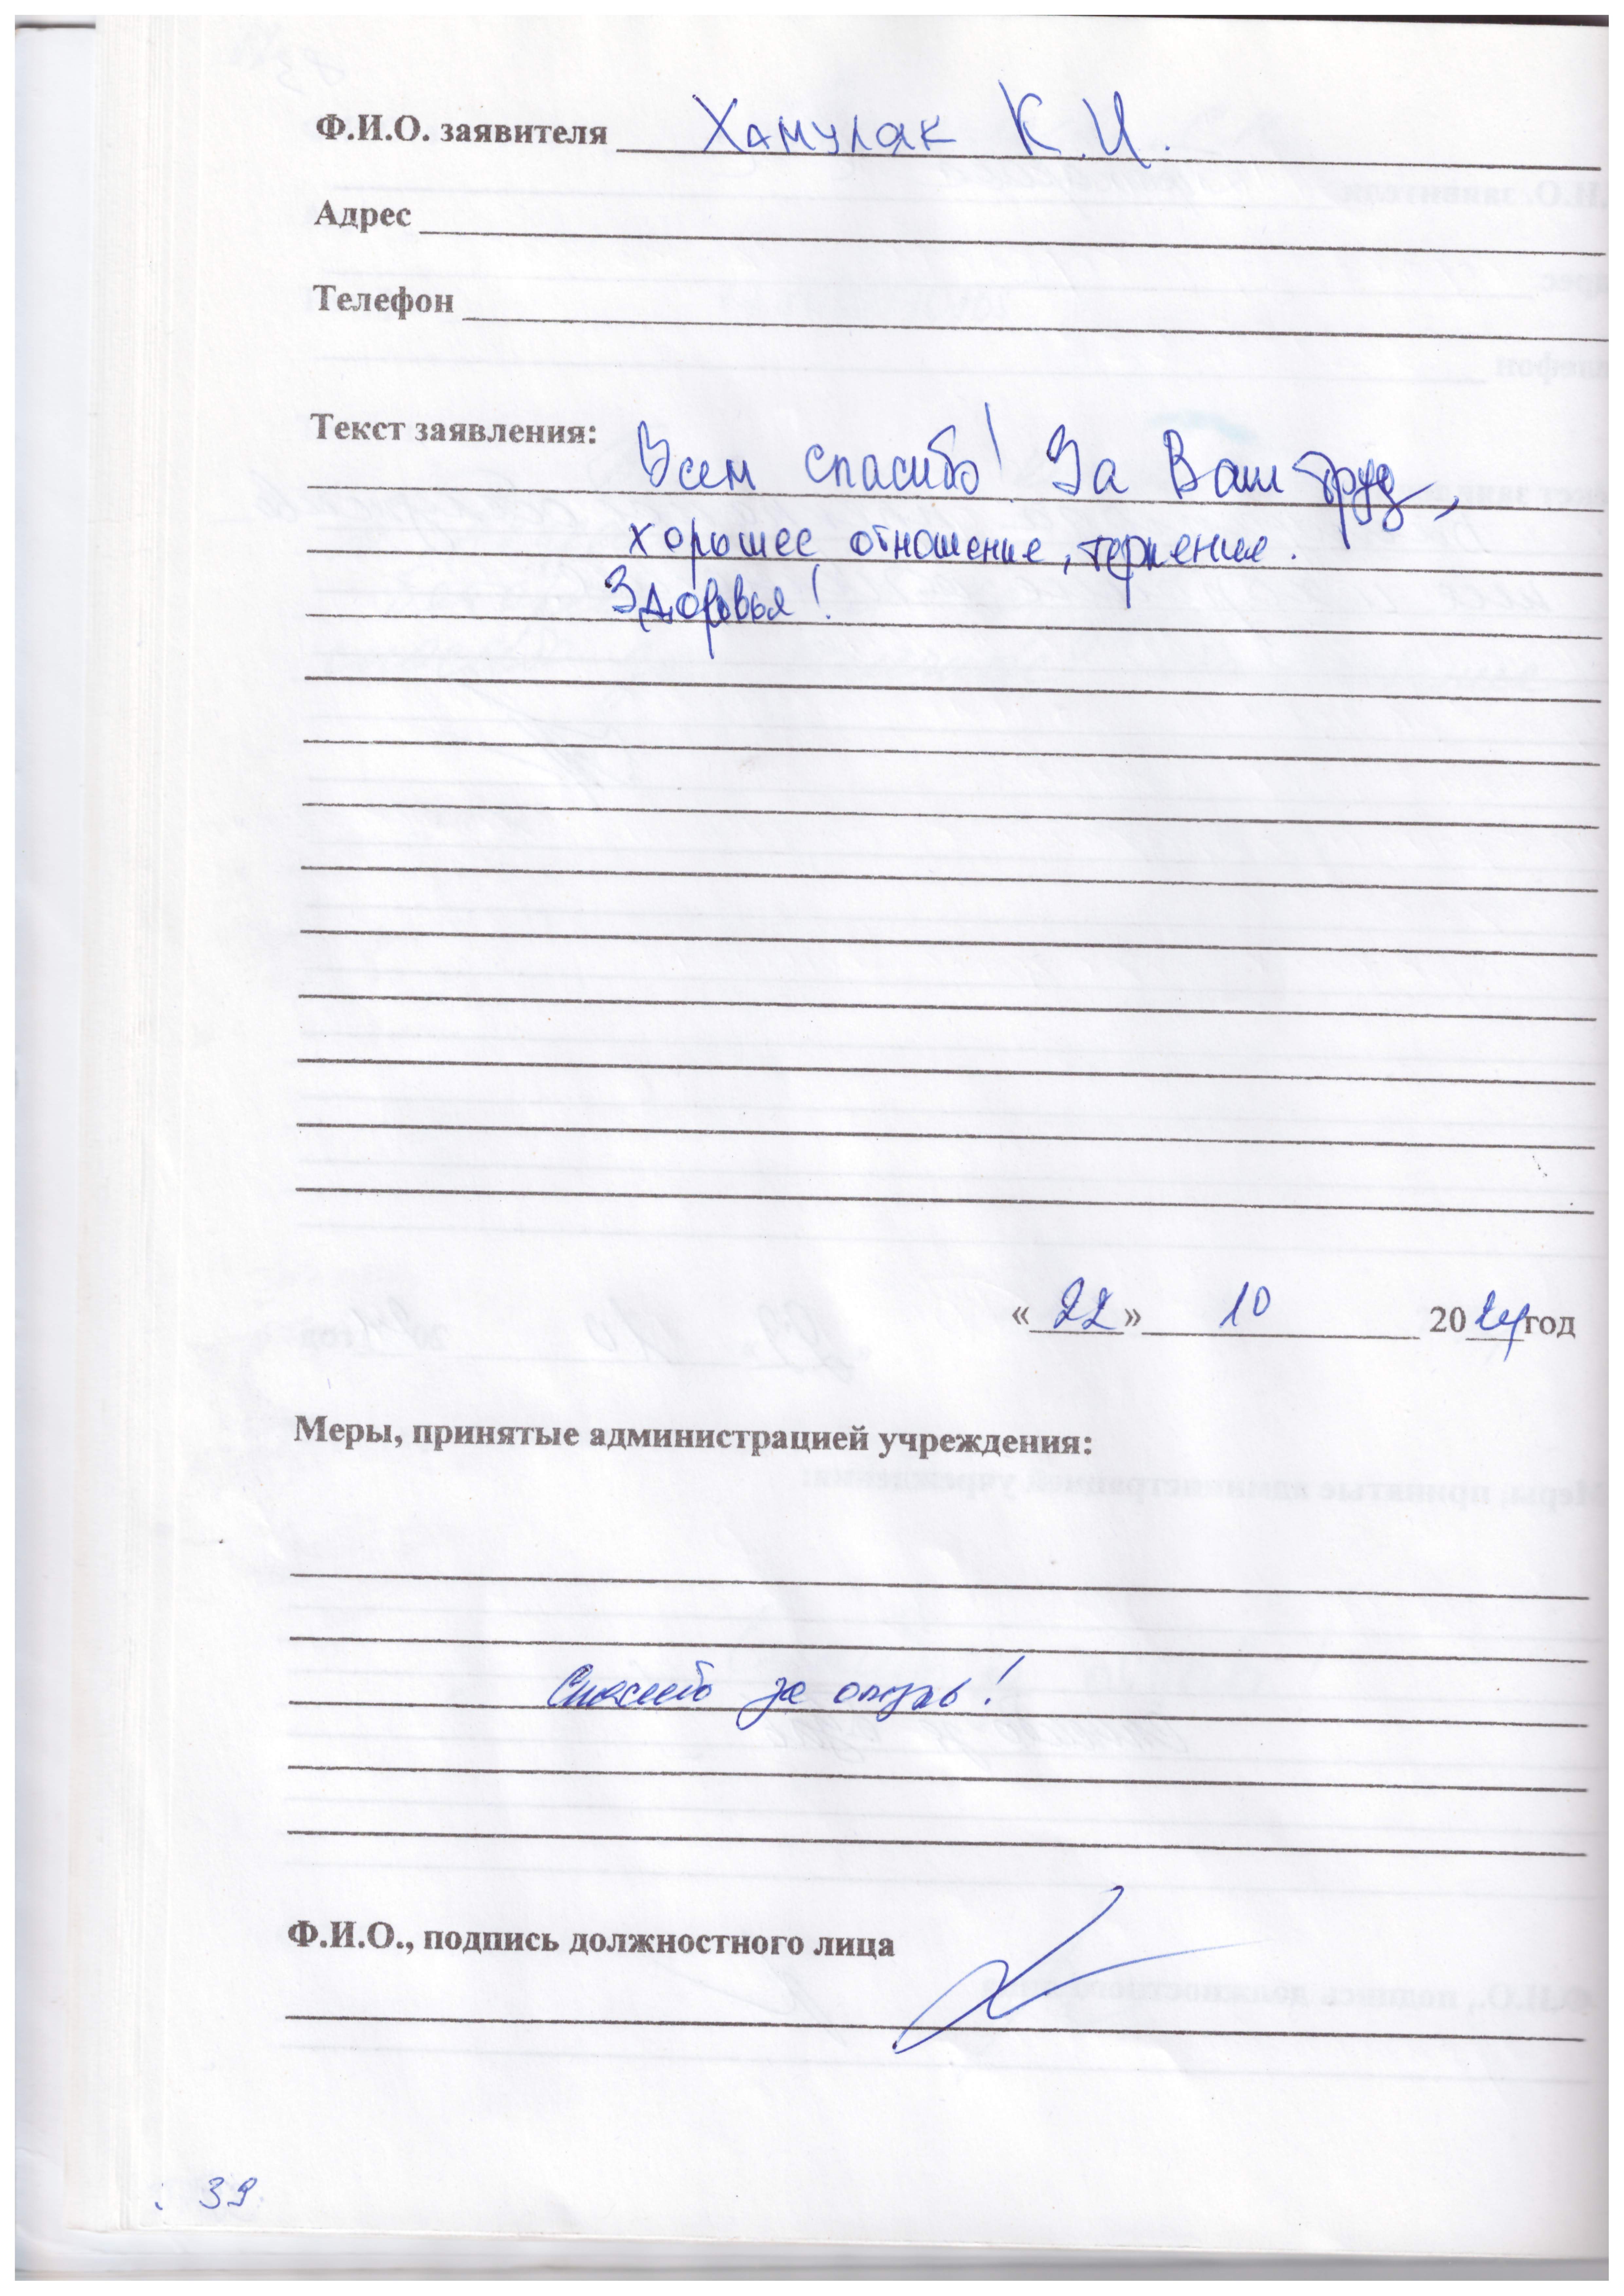 Ф.И.О. заявителя Хамуляк К.И.
Адрес
Телефон
Текст заявления:
Всем спасибо! За Ваш труд,
хорошее отношение, терпение.
Здоровья!
«22» 10 2024 год
Меры, принятые администрацией учреждения:
Спасибо за отзыв!
Ф.И.О., подпись должностного лица
39